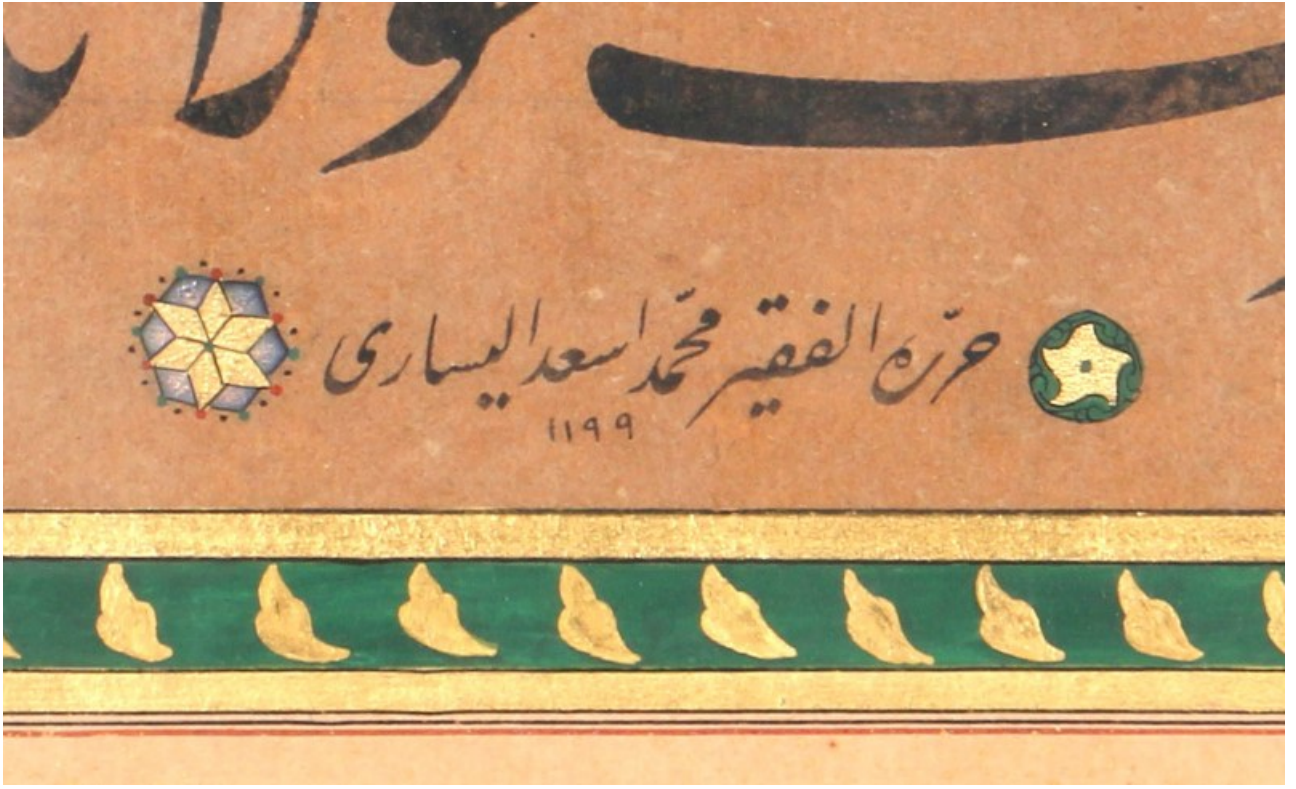 حرّره الفقير محمّد اسعد اليسارى
١١٩٩